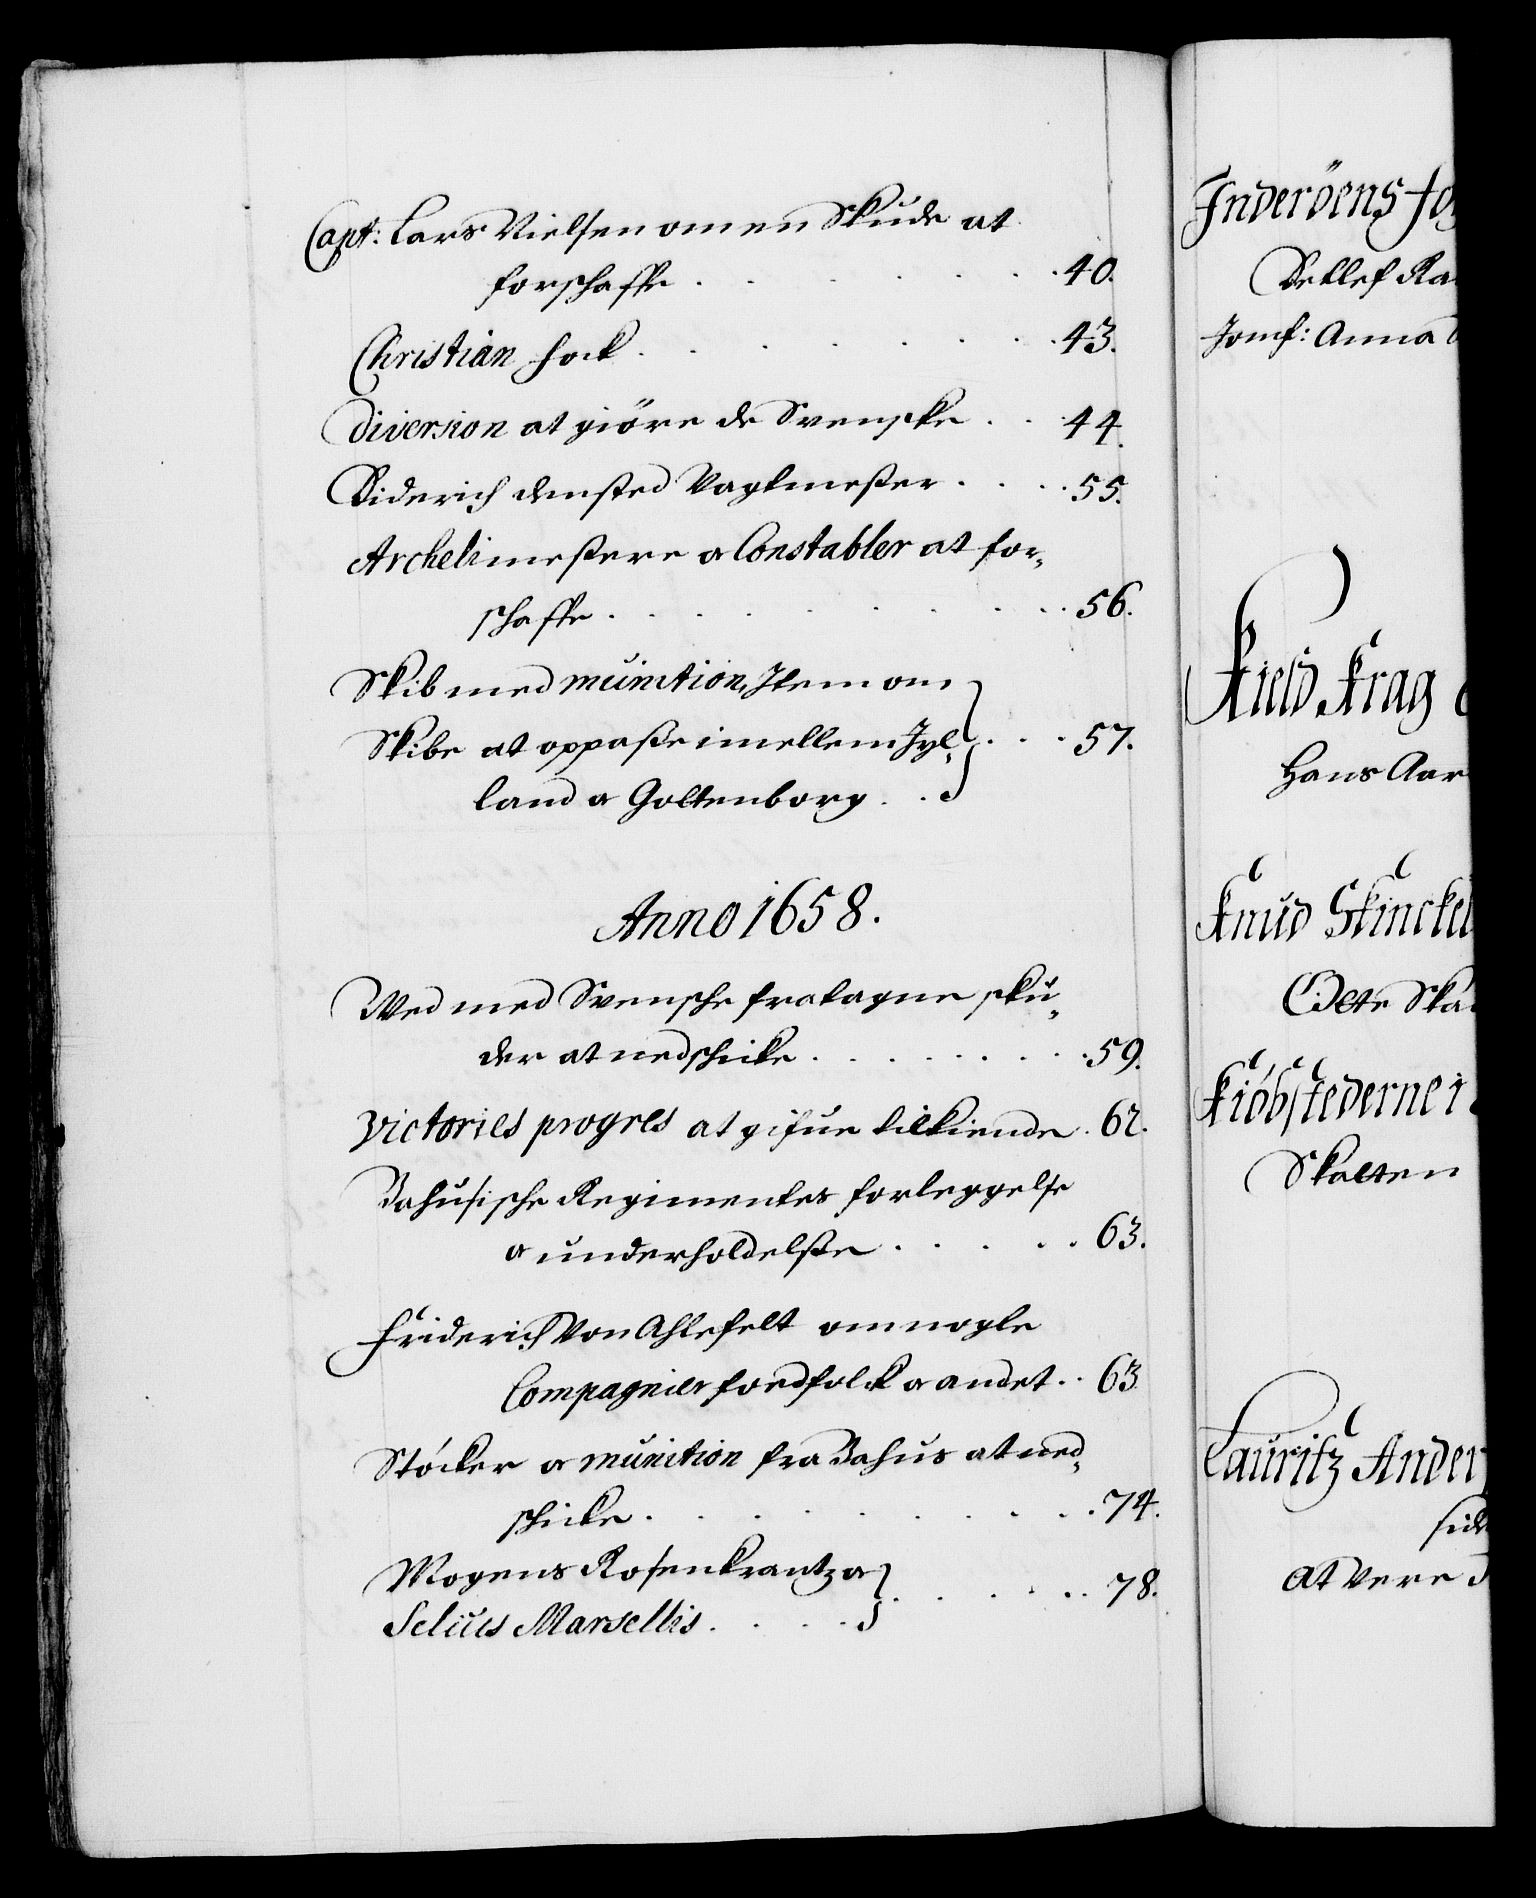 Capt: Lars Nielsen om en Skude at
forschaffe . . . . . . 40.
Christian Fock . . . . . . 43.
Diversion at giöre de Svenscke . . 44.
Diderich Remsted Vagtmester . . . . 55.
Archelimestere oc Constabler at for„
schaffe . . . . . . . 56.
Skib med munition, Item om
Skibe at oppasse imellem Jyl„ } . . . 57.
land oc Gottenborg . .
Anno 1658.
Ved med Svensche fratagne sku„
der at nedschicke . . . . . . . 59.
Victories progres at gifue tilkiende . 62.
Bahusische Regimentes forleggelse
oc underholdelsse . . . . . 63.
Friderich Von Ahlefelt om nogle
Compagnier foedfolck oc andet . . 63
Stöcker oc munition fra Bahus at ned„
schicke . . . . . . . . . 74.
Mogens Rosenkrantz oc } . . . . . 78.
Selius Marsellis . . . .
Inderöens Fo
Detlef Ra
Jomf: Anna
Kield Krag
Hans Aar
Knud Skinckel
Otte Ska
Kiöbstederne i
Skatten
Lauritz Ander
sid
At vere